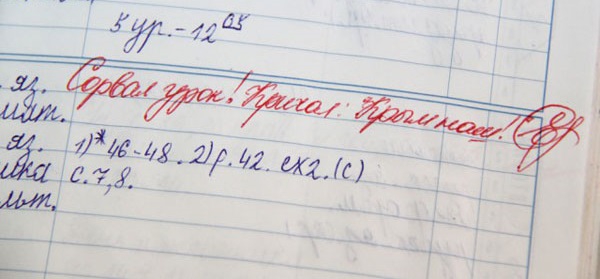 5 ур. - 12 05
. яз. Сорвал урок! Кричал: Крым наш!
мат.
яз. 1)* 46-48. 2) р. 42. ех2. (с)
ика с. 7, 8.
льт.